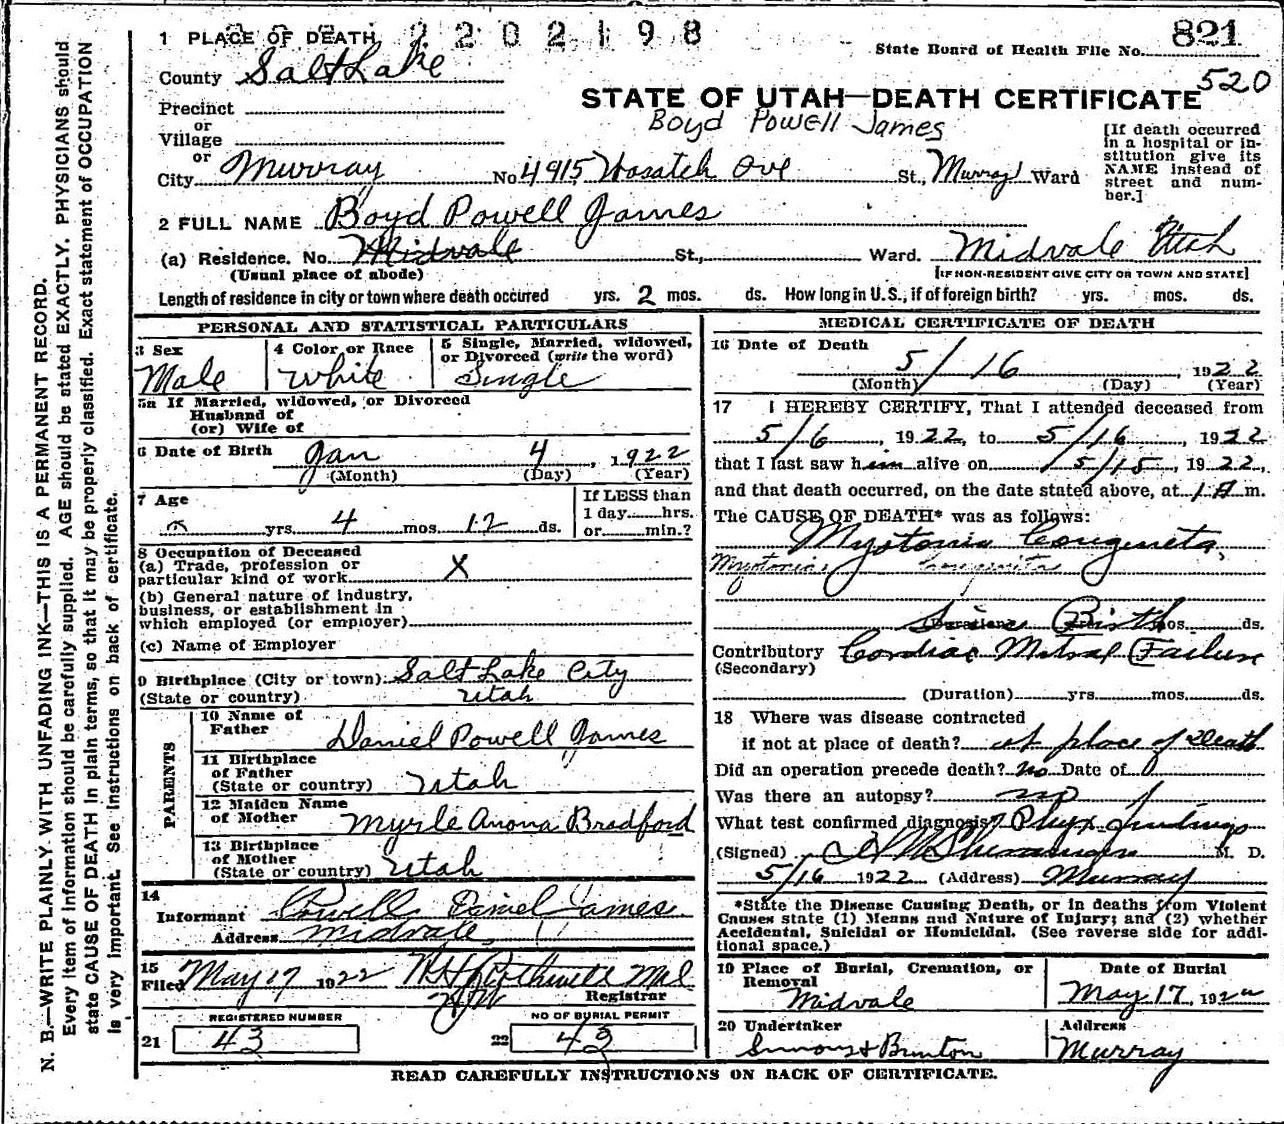 N. B.—WRITE PLAINLY WITH UNFADING INK—THIS IS A PERMANENT RECORD.
Every item of information should be carefully supplied. AGE should be stated EXACTLY. PHYSICIANS should
state CAUSE OF DEATH in plain terms, so that it may be properly classified. Exact statement of OCCUPATION
is very important. See instructions on back of certificate.
2202198
821
1 PLACE OF DEATH
State Board of Health File No.
County Salt Lake
520
Precinct
STATE OF UTAH—DEATH CERTIFICATE
or
Boyd Powell James
Village
or
City Murray No 4915 Wasatch Ave St., Murray Ward
[If death occurred
in a hospital or in-
stitution give its
NAME instead of
street and num-
ber.]
2 FULL NAME Boyd Powell James
(a) Residence. No. Midvale St., Ward. Midvale Utah
(Usual place of abode) [IF NON-RESIDENT GIVE CITY OR TOWN AND STATE]
Length of residence in city or town where death occured yrs. 2 mos. ds. How long in U.S., if of foreign birth? yrs. mos. ds.
PERSONAL AND STATISTICAL PARTICULARS
3 Sex
Male
4 Color or Race
White
5 Single, Married, widowed,
or Divorced (write the word)
Single
5a If Married, widowed, or Divorced
Husband of
(or) Wife of
6 Date of Birth Jan 4, 1922
(Month) (Day) (Year)
7 Age
yrs. 4 mos. 12 ds.
If LESS than
1 day hrs.
or min.?
8 Occupation of Deceased
(a) Trade, profession or
particular kind of work X
(b) General nature of industry,
business, or establishment in
which employed (or employer)
(c) Name of Employer
9 Birthplace (City or town) Salt Lake City
(State or country) Utah
PARENTS
10 Name of
Father Daniel Powell James
11 Birthplace
of Father
(State or country) Utah
12 Maiden Name
of Mother Myrle Anona Bradford
13 Birthplace
of Mother
(State or country) Utah
14
Informant Powell Daniel James
Address Midvale
15
Filed May 17 1922
Registrar
REGISTERED NUMBER
21 43
NO OF BURIAL PERMIT
22 43
MEDICAL CERTIFICATE OF DEATH
16 Date of Death
5/16, 1922
(Month) (Day) (Year)
17 I HEREBY CERTIFY, That I attended deceased from
5/6, 1922, to 5/16, 1922
that I last saw him alive on 5/15, 1922,
and that death occurred, on the date stated above, at 1 A m.
The CAUSE OF DEATH* was as follows:
Myotonia Congineta
Myotonia congenita
(Duration) Since Birth mos. ds.
Contributory Cardiac Mitral Failure
(Secondary)
(Duration) yrs. mos. ds.
18 Where was disease contracted
if not at place of death? at place of Death
Did an operation precede death? no Date of
Was there an autopsy? no
What test confirmed diagnosis? Phys findings
(Signed) M. D.
5/16 1922 (Address) Murray
*State the Disease Causing Death, or in deaths from Violent
Causes state (1) Means and Nature of Injury; and (2) whether
Accidental, Suicidal or Homicidal. (See reverse side for addi-
tional space.)
19 Place of Burial, Cremation, or
Removal
Midvale
Date of Burial
May 17, 1922
20 Undertaker
Address
Murray
READ CAREFULLY INSTRUCTIONS ON BACK OF CERTIFICATE.